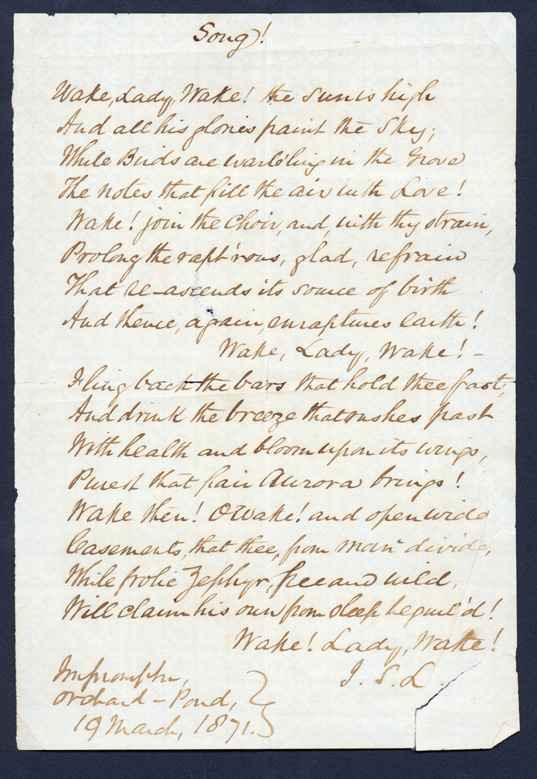 Song!
Wake, Lady, Wake! the sun is high
And all his glories paint the Sky;
While Birds are warbling in the Grove
The notes that fill the air with Love!
Wake! join the Choir, and, with thy strain,
Prolong the rapt'rous, glad, refrain
That re-ascends its source of birth
And thence, again, enraptures earth!
Wake, Lady, Wake! -
Fling back the bars that hold thee fast,
And drink the breeze that rushes past
With health and bloom upon its wings,
Purest that fair Aurora brings!
Wake then! O Wake! and open wide
Casements, that thee, from morn divide,
While frolic Zephyr, free and wild,
Will claim his own from sleep beguil'd!
Wake! Lady, Wake!
Impromptu,
Orchard - Pond,
19 March, 1871.
J. S. L.